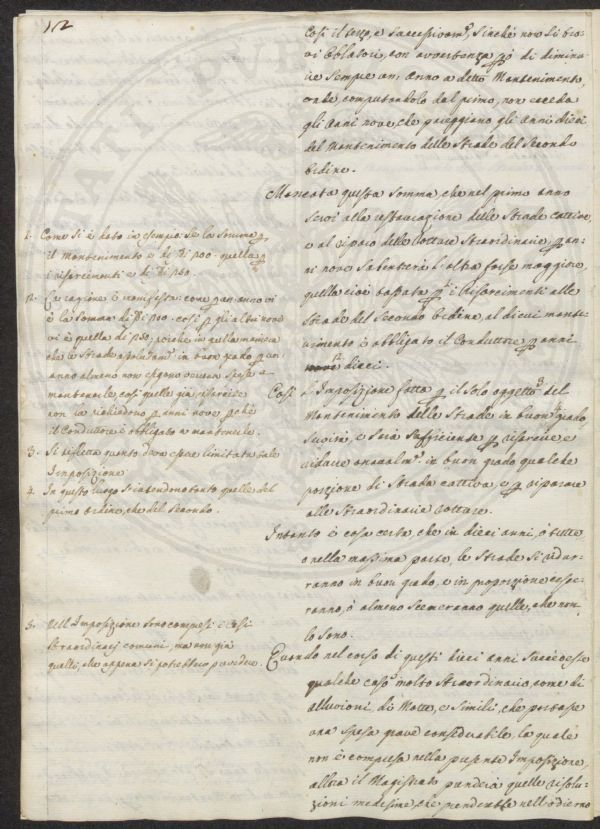 12
Così il terzo, e successivam.e, sinchè non si tro-
vi Oblatore, con avvertenza però di diminui-
re sempre un' Anno a detto Mantenimento,
onde, computandolo dal primo, non ecceda
gli Anni nove, che pareggiano gli Anni dieci
del Mantenimento delle Strade del Secondo
Ordine.
Mancata questa Somma, che nel primo anno
servì alla restaurazione delle Strade cattive,
e al riparo delle Rotture Straordinarie, p an-
ni nove Subentrerà l'altra forse maggiore,
quella cioè tassata p i Risarcimenti alle
Strade del Secondo Ordine, al di cui mante-
nimento è obbligato il Conduttore p anni
dieci.
Così l'Imposizione fatta p il solo oggetto del
Mantenimento delle Strade in buon grado,
servirà, e sarà Sufficiente p risarcire e
ridurre annualm.e in buon grado qualche
porzione di Strada cattiva, e p riparare
alle Straordinarie Rotture.
Intanto è cosa certa, che in dieci anni, o tutte,
o nella massima parte, le Strade si ridur-
ranno in buon grado, e in proporzione cesse-
ranno, o almeno scemeranno quelle, che non
lo sono.
Quando nel corso di questi dieci anni Succedesse
qualche caso molto Straordinario, come di
alluvioni, di Rotte, e Simili, che portasse
una Spesa grave considerabile, la quale
non è compresa nella presente Imposizione,
allora il Magistrato prenderà quelle risolu-
zioni medesime, che prenderebbe nell'odierno
1. Come si è dato in esempio: se la Somma p
il Mantenimento è di 200. quella p
i risarcimenti è di 260.
2. La ragione è manifesta: come p un anno vi
è la Somma di 200. così p gli altri nove
vi è quella di 260, poichè in quella maniera
che le Strade in buon grado p un
anno almeno non esigono veruna Spesa a
mantenerle, così quelle già risarcite
non la richiedono p anni nove, perchè
il Conduttore è obbligato a mantenerle.
3. Si rifletta quanto deve essere limitata tale
Imposizione
4. In questo luogo s'intendono tanto quelle del
primo Ordine, che del Secondo.
5. Nell'Imposizione sono compresi i casi
Straordinarj comuni, ma non già
quelli, che appena si potrebbero prevedere.